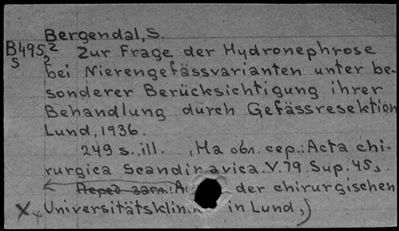 Bergendal, S.
B495 2 Zur Frage der Hydronephrose
5 2 bei Nierengefässvarianten unter be-
sonderer Berücksichtigung ihrer
Behandlung durch Gefässresektion
Lund, 1936.
249 s., ill. , На обл. сер.: Acta chi-
rurgica Scandinavica. V. 79. Sup. 45,
Перед загл.: der chirurgischen
Universitätsklin in Lund,)